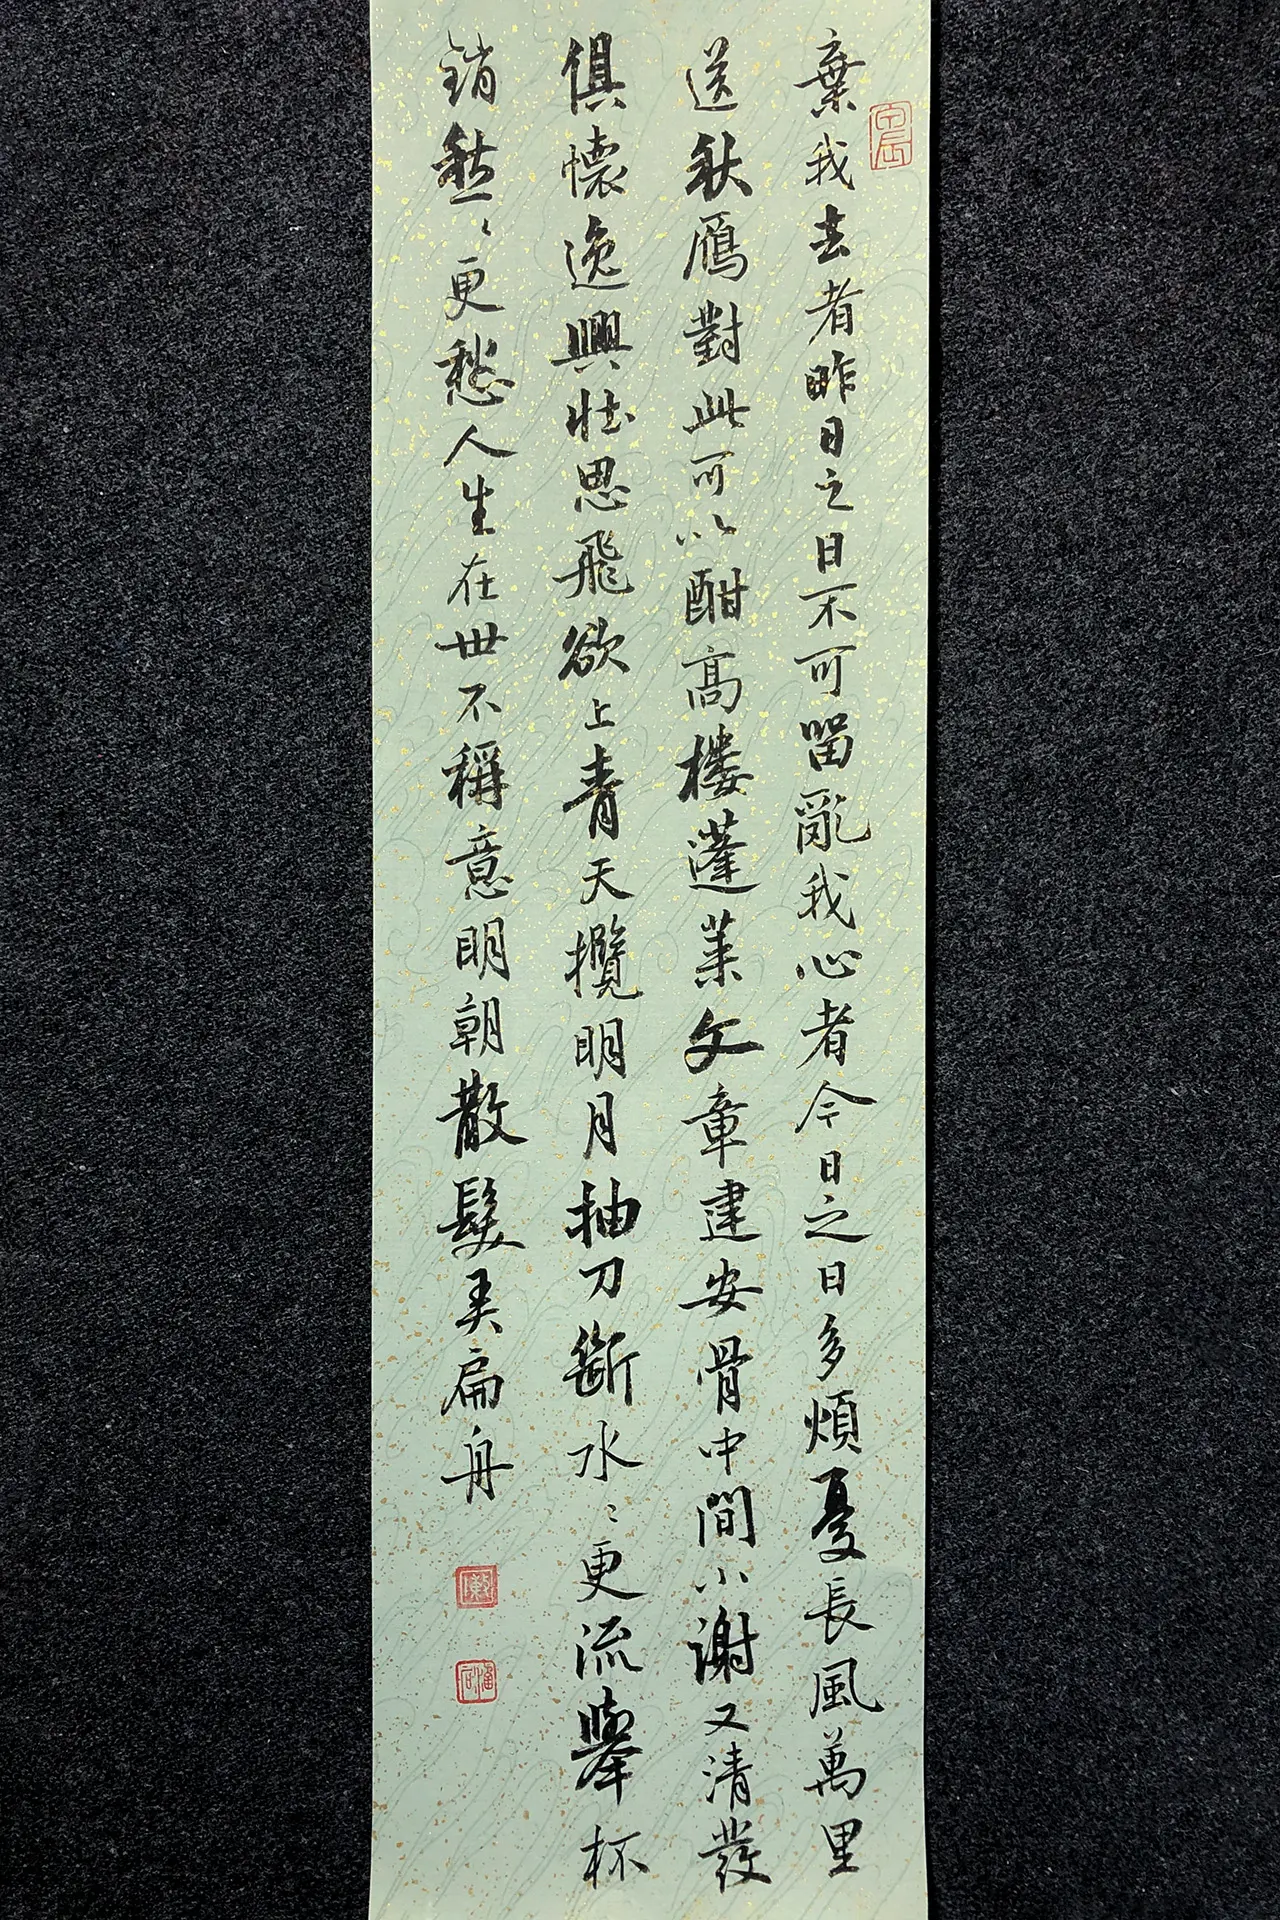 棄我去者昨日之日不可留亂我心者今日之日多煩憂長風萬里
送秋雁對此可以酣高樓蓬萊文章建安骨中間小謝又清發
俱懷逸興壯思飛欲上青天攬明月抽刀斷水〻更流舉杯
銷愁〻更愁人生在世不稱意明朝散髮弄扁舟